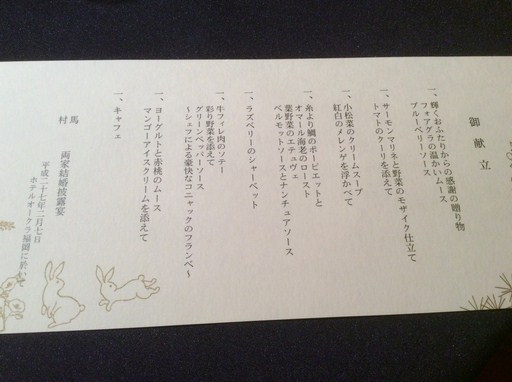 御献立
一、輝くおふたりからの感謝の贈り物
フォアグラの温かいムース
ブルーベリーソース
一、サーモンマリネと野菜のモザイク仕立て
トマトのクーリを添えて
一、小松菜のクリームスープ
紅白のメレンゲを浮かべて
一、糸より鯛のポーピエットと
オマール海老のロースト
葉野菜のエテュヴェ
ベルモットソースとナンチュアソース
一、ラズベリーのシャーベット
一、牛フィレ肉のソテー
彩り野菜を添えて
グリーンペッパーソース
～シェフによる豪快なコニャックのフランベ～
一、ヨーグルトと赤桃のムース
マンゴーアイスクリームを添えて
一、キャフェ
馬
村
両家結婚披露宴
平成二十七年二月七日
ホテルオークラ福岡に於いて